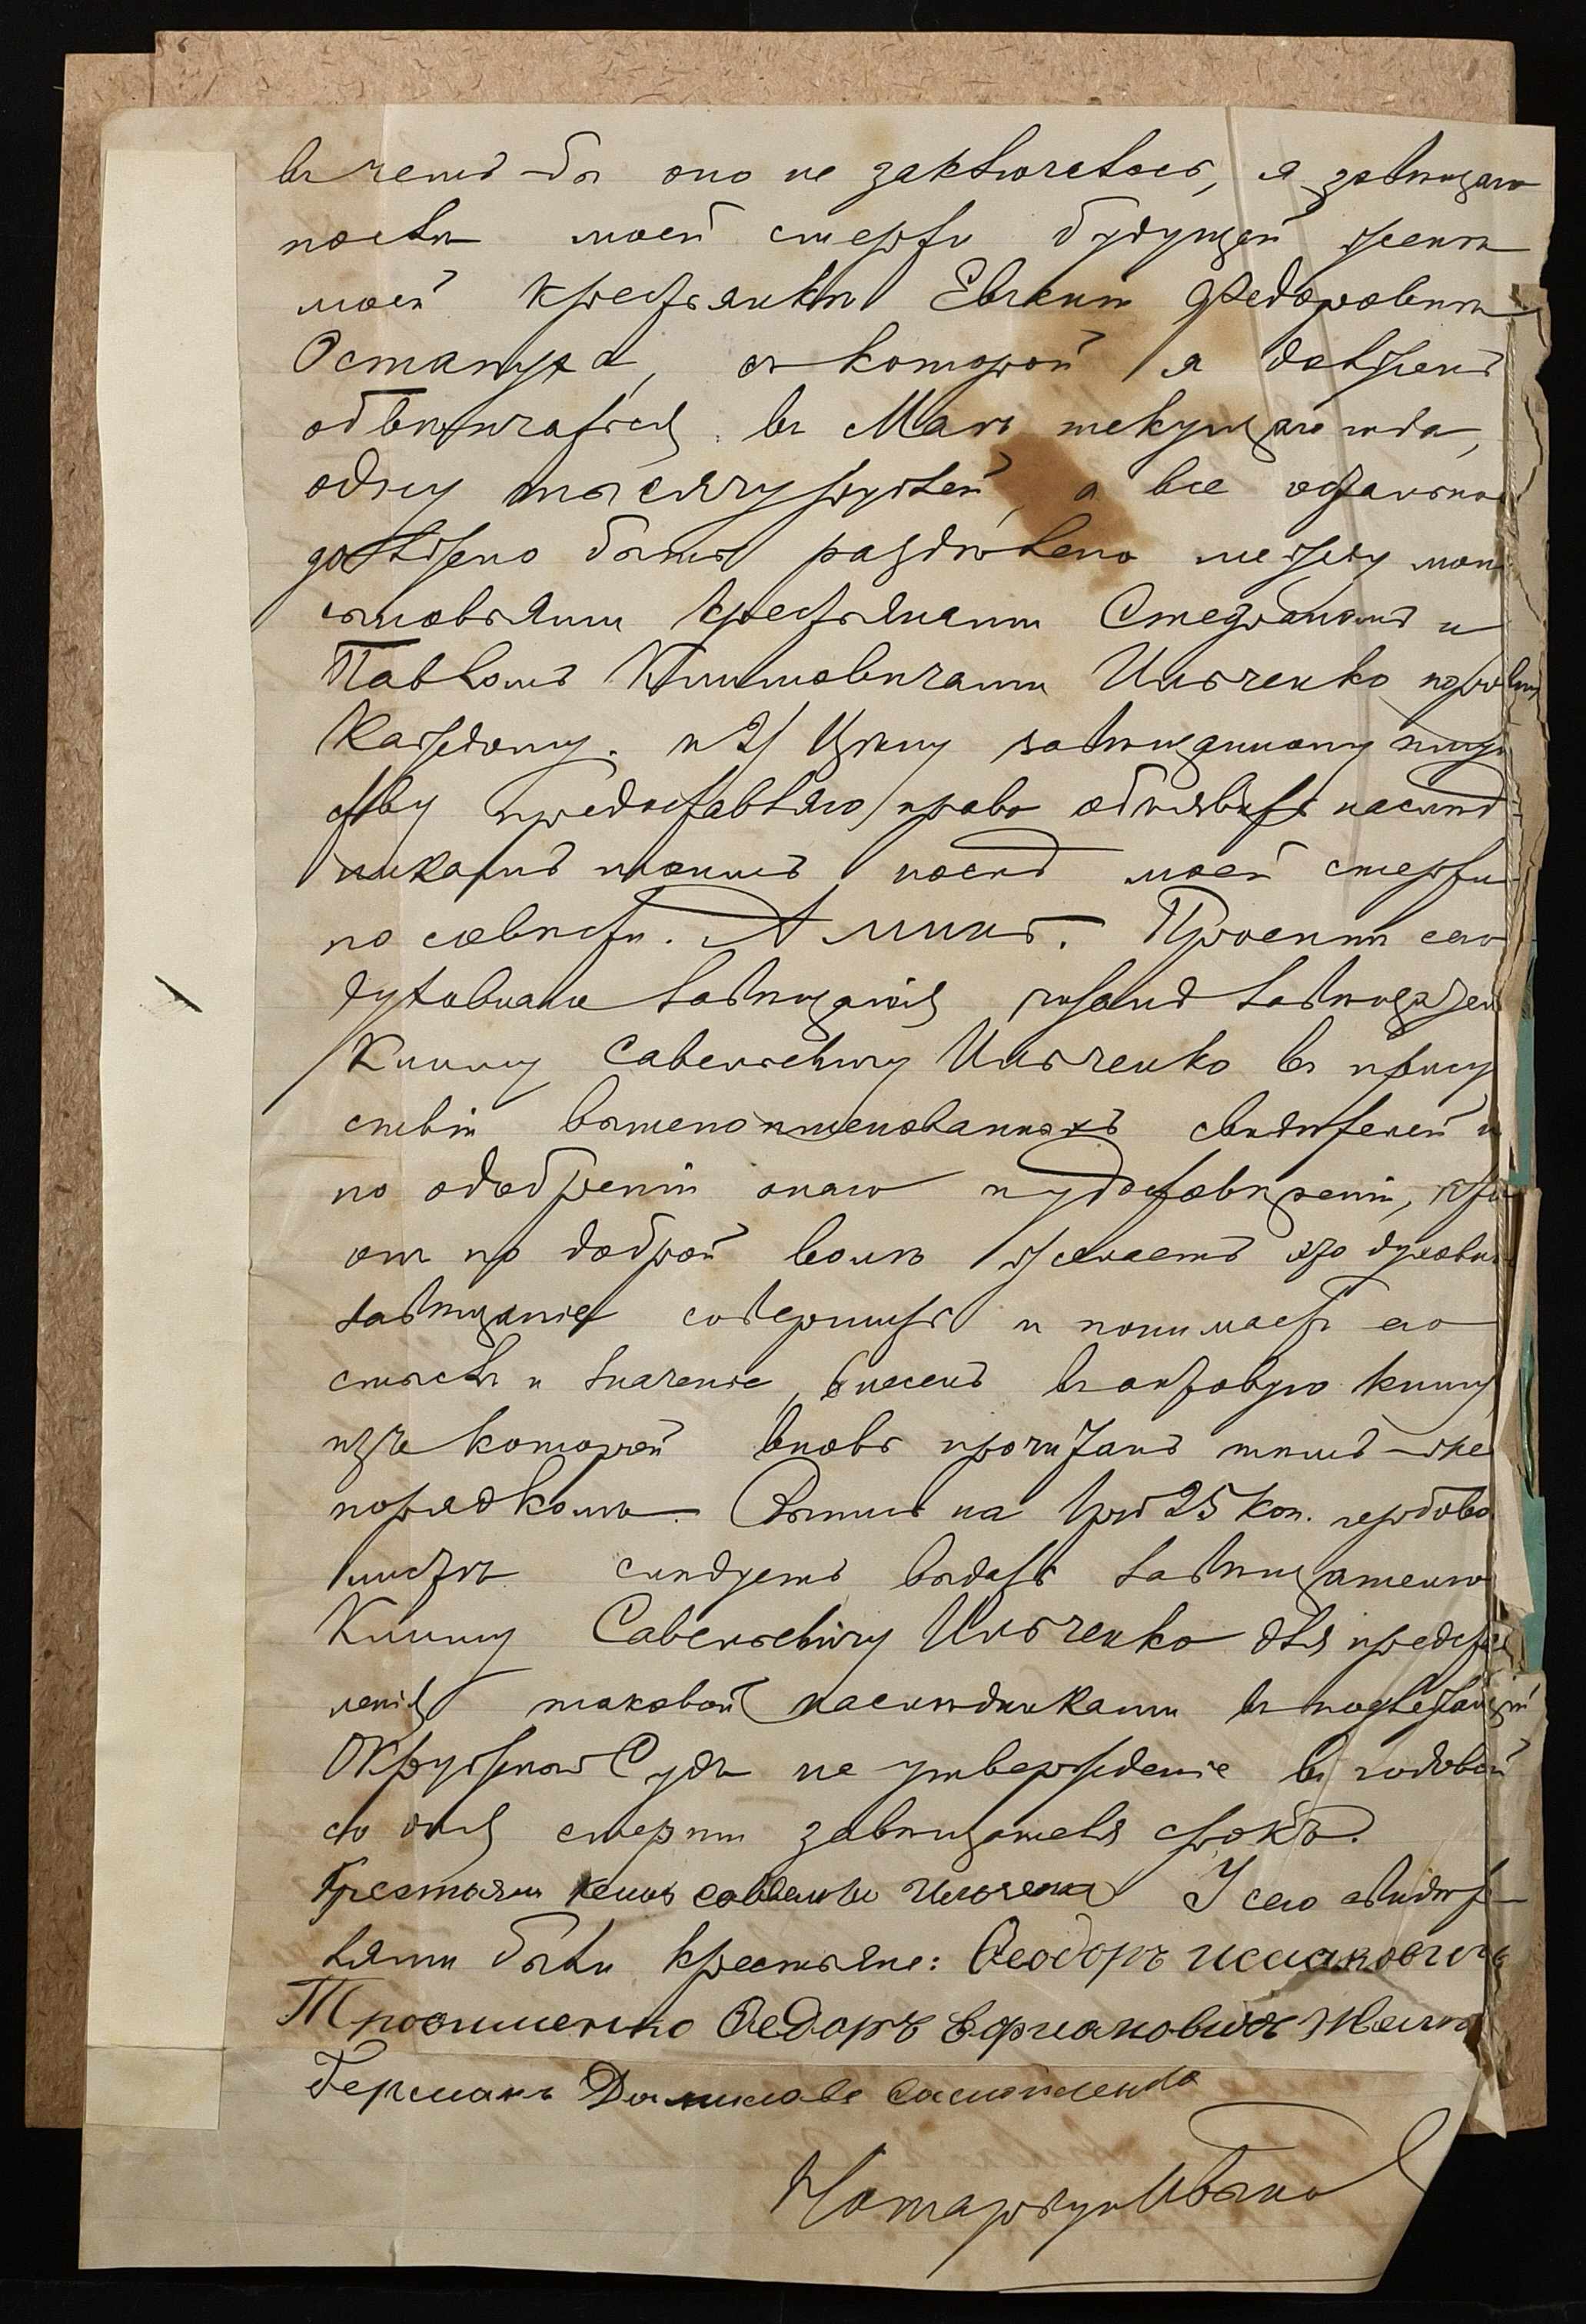 въ чемъ-бы оно не заключалось, я завѣщаю
послѣ моей смерти будущей женѣ
моей крестьянкѣ Евгеніи Федоровнѣ
съ которой я долженъ
обвѣнчаться въ Маѣ текущаго года,
одну тысячу рублей, а все остальное
должно быть раздѣлено между мои
сыновьями крестьянами Стефаномъ и
Павломъ Климовичами Ильченко поровну
каждому. и 2/ Цѣну завѣщанному имуще
ству предоставляю право объявить наслѣд
никамъ моимъ послѣ моей смерти
по совѣсти. Аминь. Проектъ сего
духовнаго завѣщанія читанъ завѣщателю
Климу Савельевичу Ильченко въ прису
ствіи вышепоименованныхъ свидѣтелей и
по одобреніи онаго и удостовѣреніи, что
онъ по доброй волѣ желаетъ это духовно
завѣщаніе совершить и понимаетъ его
смыслъ и значеніе, внесенъ въ актовую книгу
изъ которой вновь прочитанъ тѣмъ-же
порядкомъ. Выпись на 1 руб 25 коп. гербово
листѣ слѣдуетъ выдать завѣщателю
Климу Савельевичу Ильченко для представ
ленія таковой наслѣдниками въ подлежащій
Окружной Судъ на утвержденіе въ годовой
со дня смерти завѣщателя срокъ.
Крестьянинъ Климъ Савельевъ Ильченко У сего свидѣте-
лями были крестьяне: Ѳеодоръ Исааковичъ
Трофименко Ѳедоръ Ефимовичъ
Германъ Даниловъ
Нотаріусъ Ивано